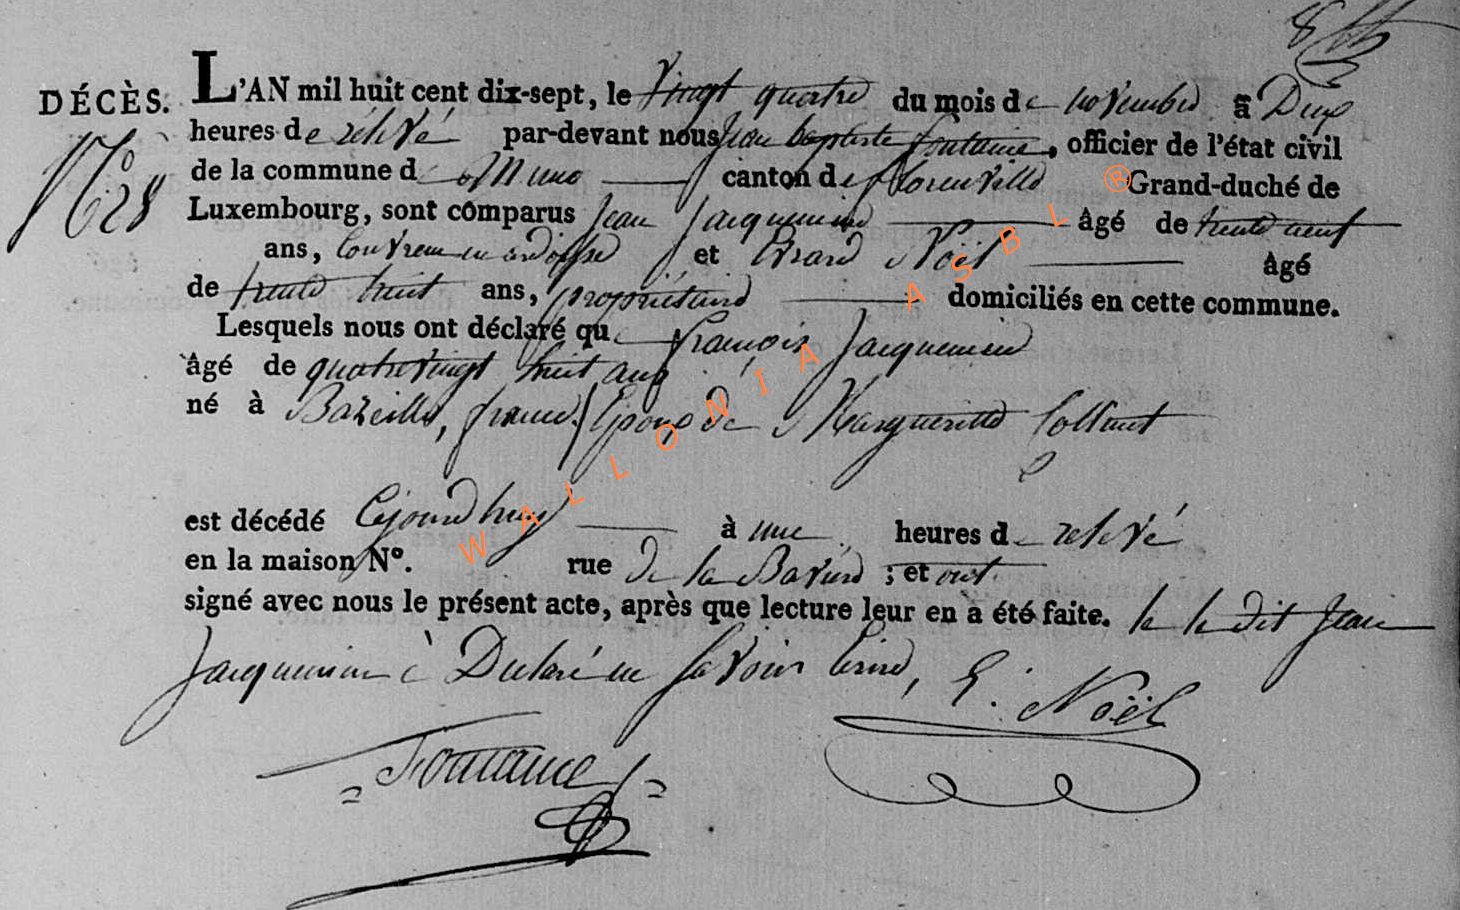 DÉCÈS. L'AN mil huit cent dix-sept, le vingt quatre du mois de novembre à Deux
heures de rélevé par-devant nous Jean baptiste fontaine, officier de l'état civil
N° 28
de la commune de Muno canton de florenville Grand-duché de
Luxembourg, sont comparus Jean Jacquemin âgé de trente neuf
ans, Couvreur en ardoise et Erard Noël âgé
de trente huit ans, propriétaire domiciliés en cette commune.
Lesquels nous ont déclaré que françois Jacquemin
âgé de quatrevingt huit ans
né à Bazeille, france, Epoux de Margueritte Collaut
est décédé Cejourdhuy à une heures de relevé
en la maison N°. rue de la Bavière ; et ont
signé avec nous le présent acte, après que lecture leur en a été faite. le dit Jean
Jacquemin à Déclaré ne savoir Ecrire, E. Noël
Fontaine
® WALLONIA ASBL